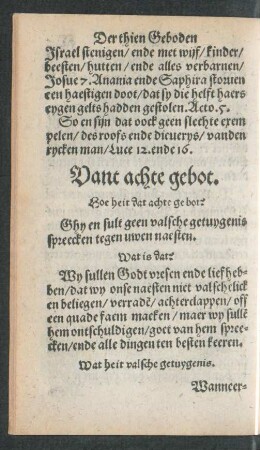 Der thien Geboden
Israel stenigen/ ende met wijf/ kinder/
beesten/ hutten/ ende alles verbarnen/
Josue 7. Anania ende Saphira storuen
een haestigen doot/ dat sy die helft haers
eygen gelts hadden gestolen. Acto. 5.
So en sijn dat oock geen slechte exem
pelen/ des roofs ende dieuerys/ vanden
rycken man/ Luce 12. ende 16.
Vant achte gebot.
Hoe heit dat achte gebot?
Ghy en sult geen valsche getuygenis
spreecken tegen uwen naesten.
Wat is dat?
Wy sullen Godt vresen ende lief heb-
ben/ dat wy onse naesten niet valschelick
en beliegen/ verradē/ achterclappen/ off
een quade faem macken/ maer wy sullē
hem ontschuldigen/ goet van hem spree-
cken/ ende alle dingen ten besten keeren.
Wat heit valsche getuygenis.
Wanneer-